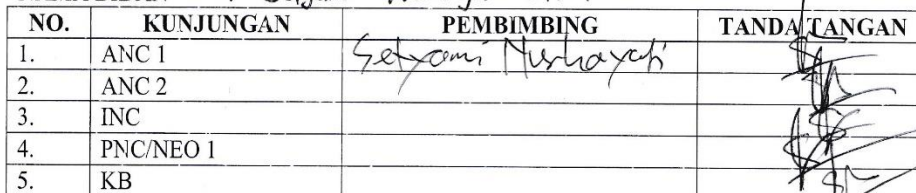 NO. KUNJUNGAN PEMBIMBING TANDA TANGAN
1. ANC 1 Setyami Nurhayati
2. ANC 2
3. INC
4. PNC/NEO 1
5. KB